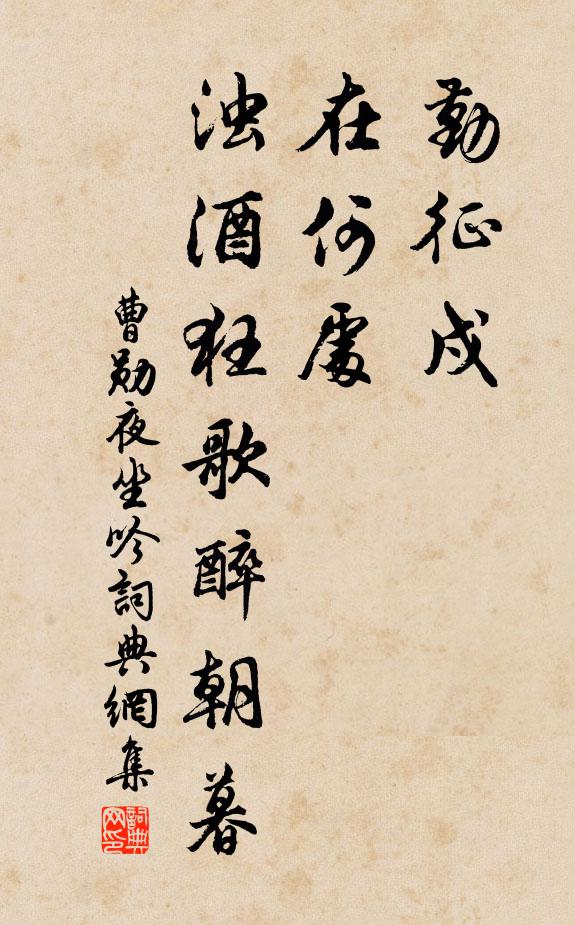 勤征戍
在何處
浊酒狂歌醉朝暮
曹勛夜坐吟詞典網集
詞典网印